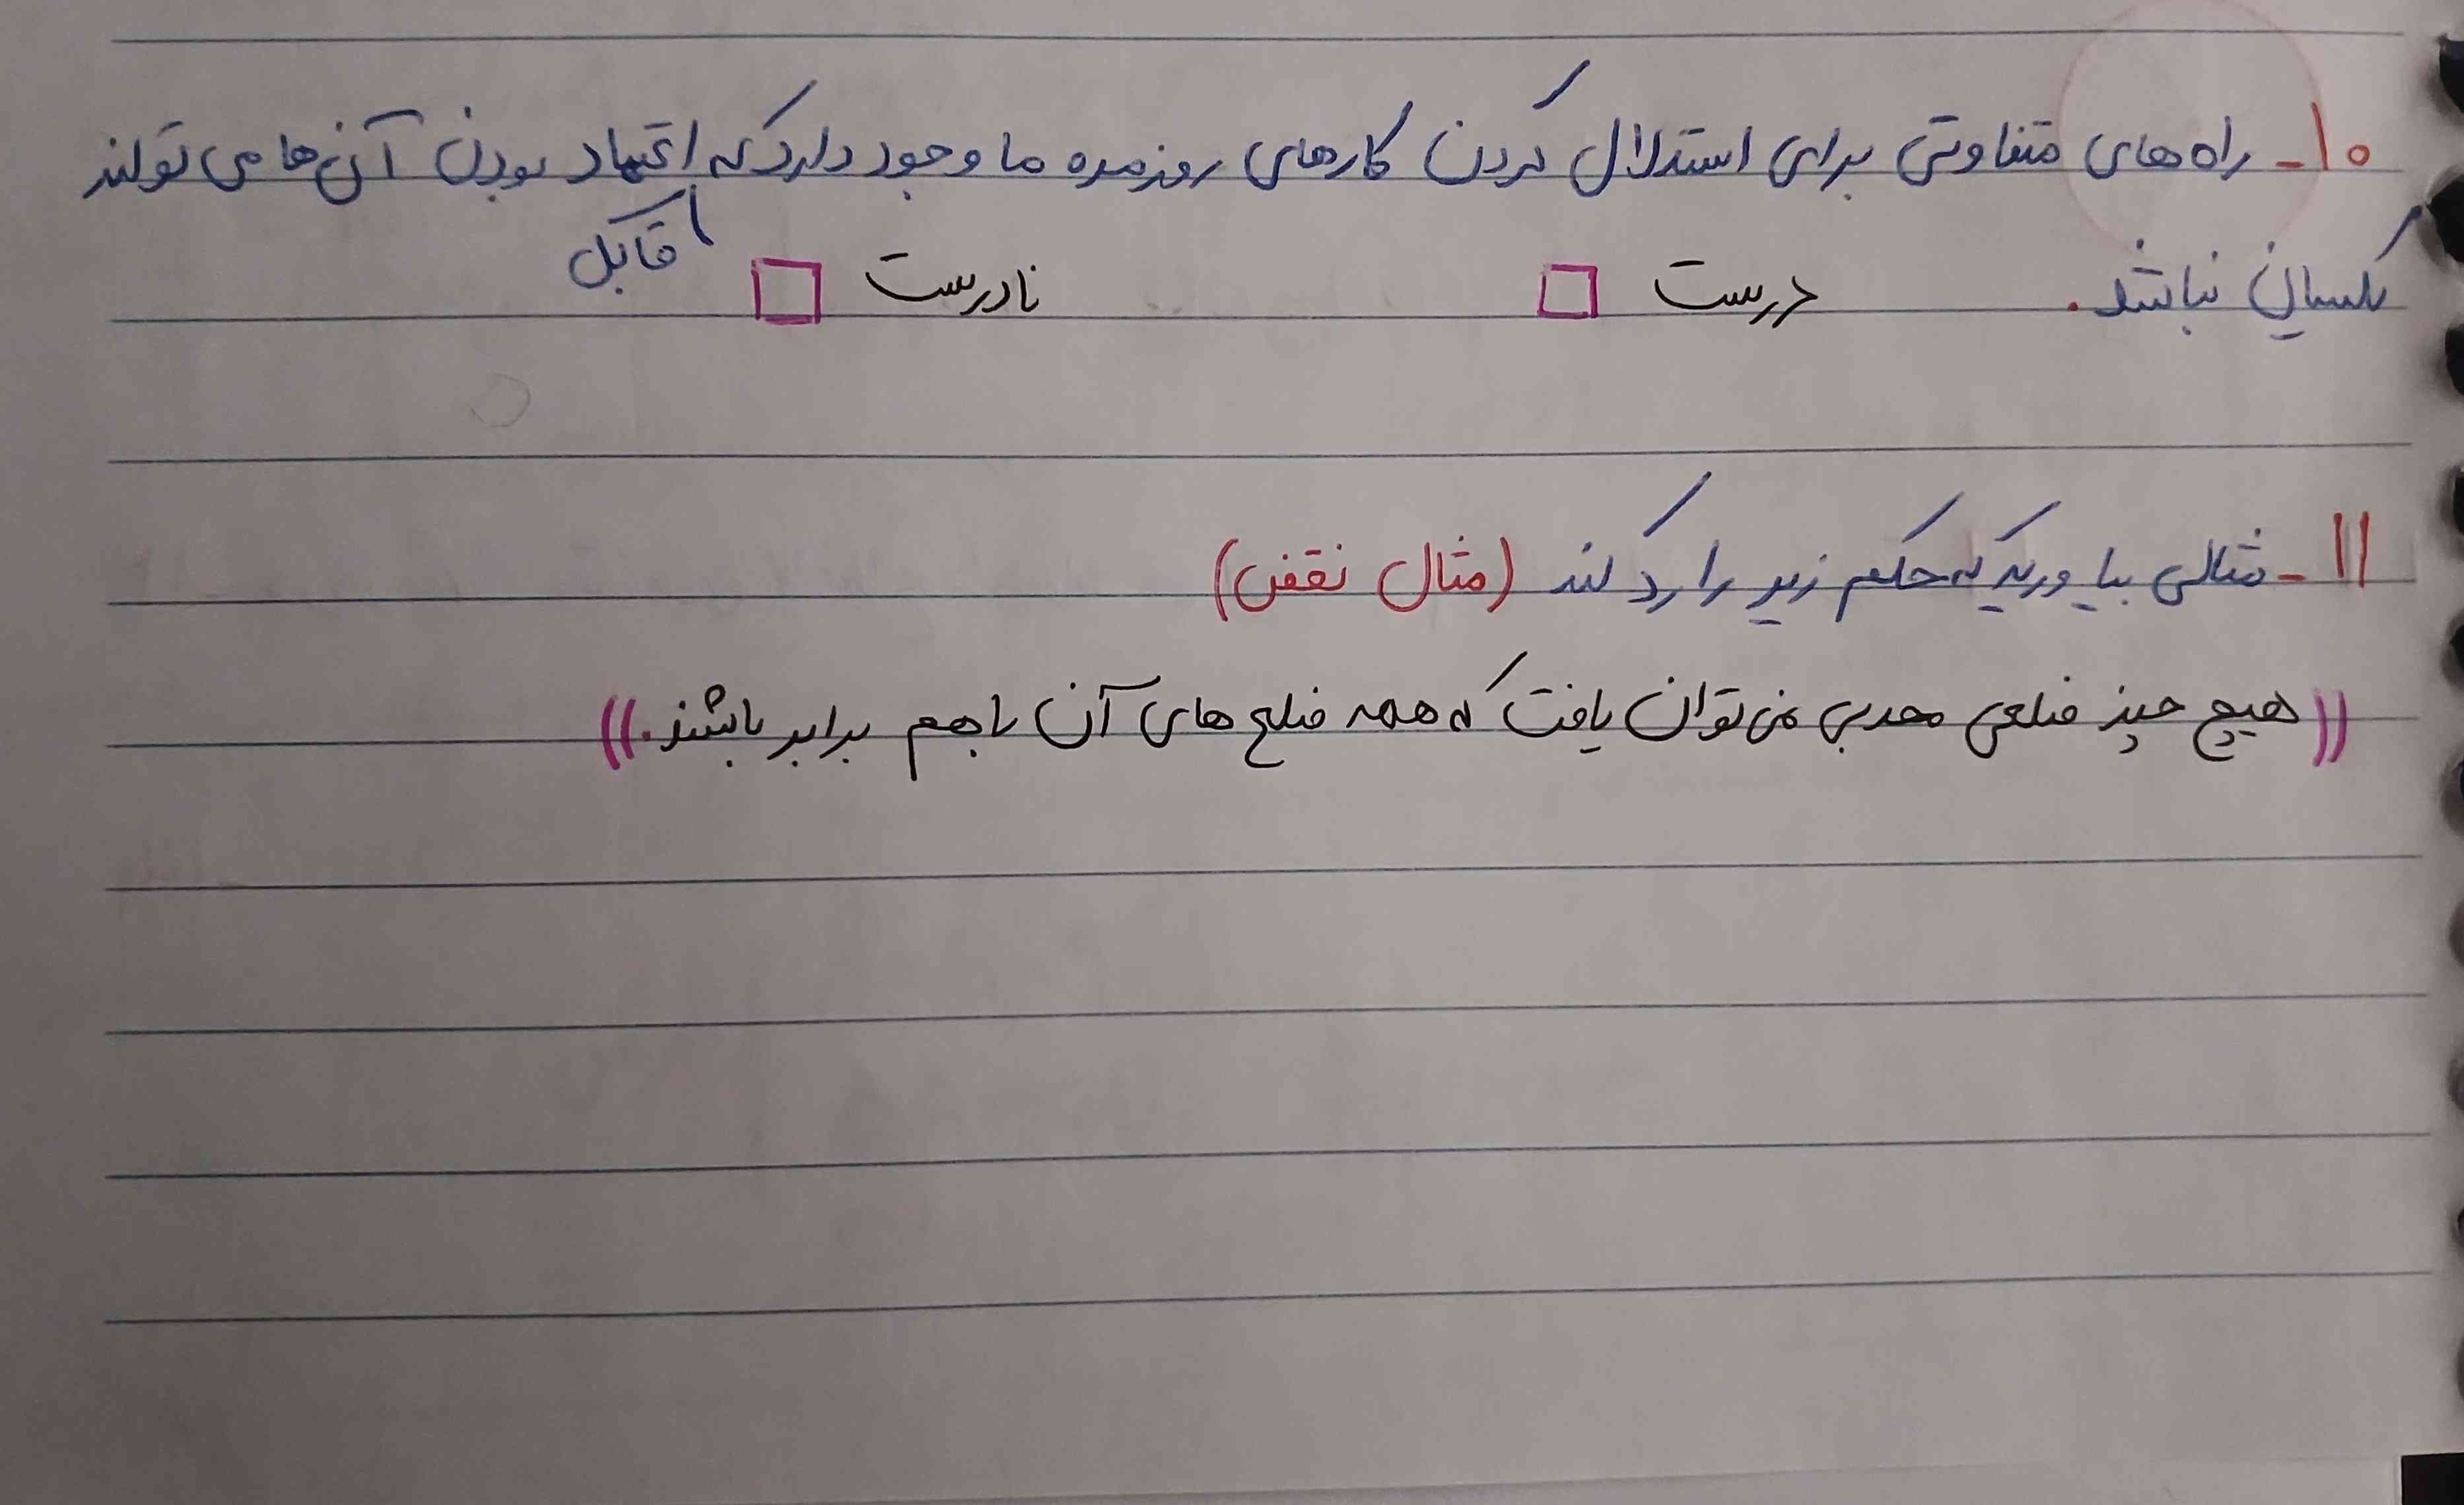 ۱۰- راه های متفاوتی برای استدلال کردن کارهای روزمره ما وجود دارد که اعتماد بودن آن ها می تواند
قابل
یکسان نباشد. درست □ نادرست □
۱۱- مثالی بیاورید که حکم زیر را رد کند (مثال نقض)
((هیچ چند ضلعی محدبی نمی توان یافت که همه ضلع های آن با هم برابر باشند.))